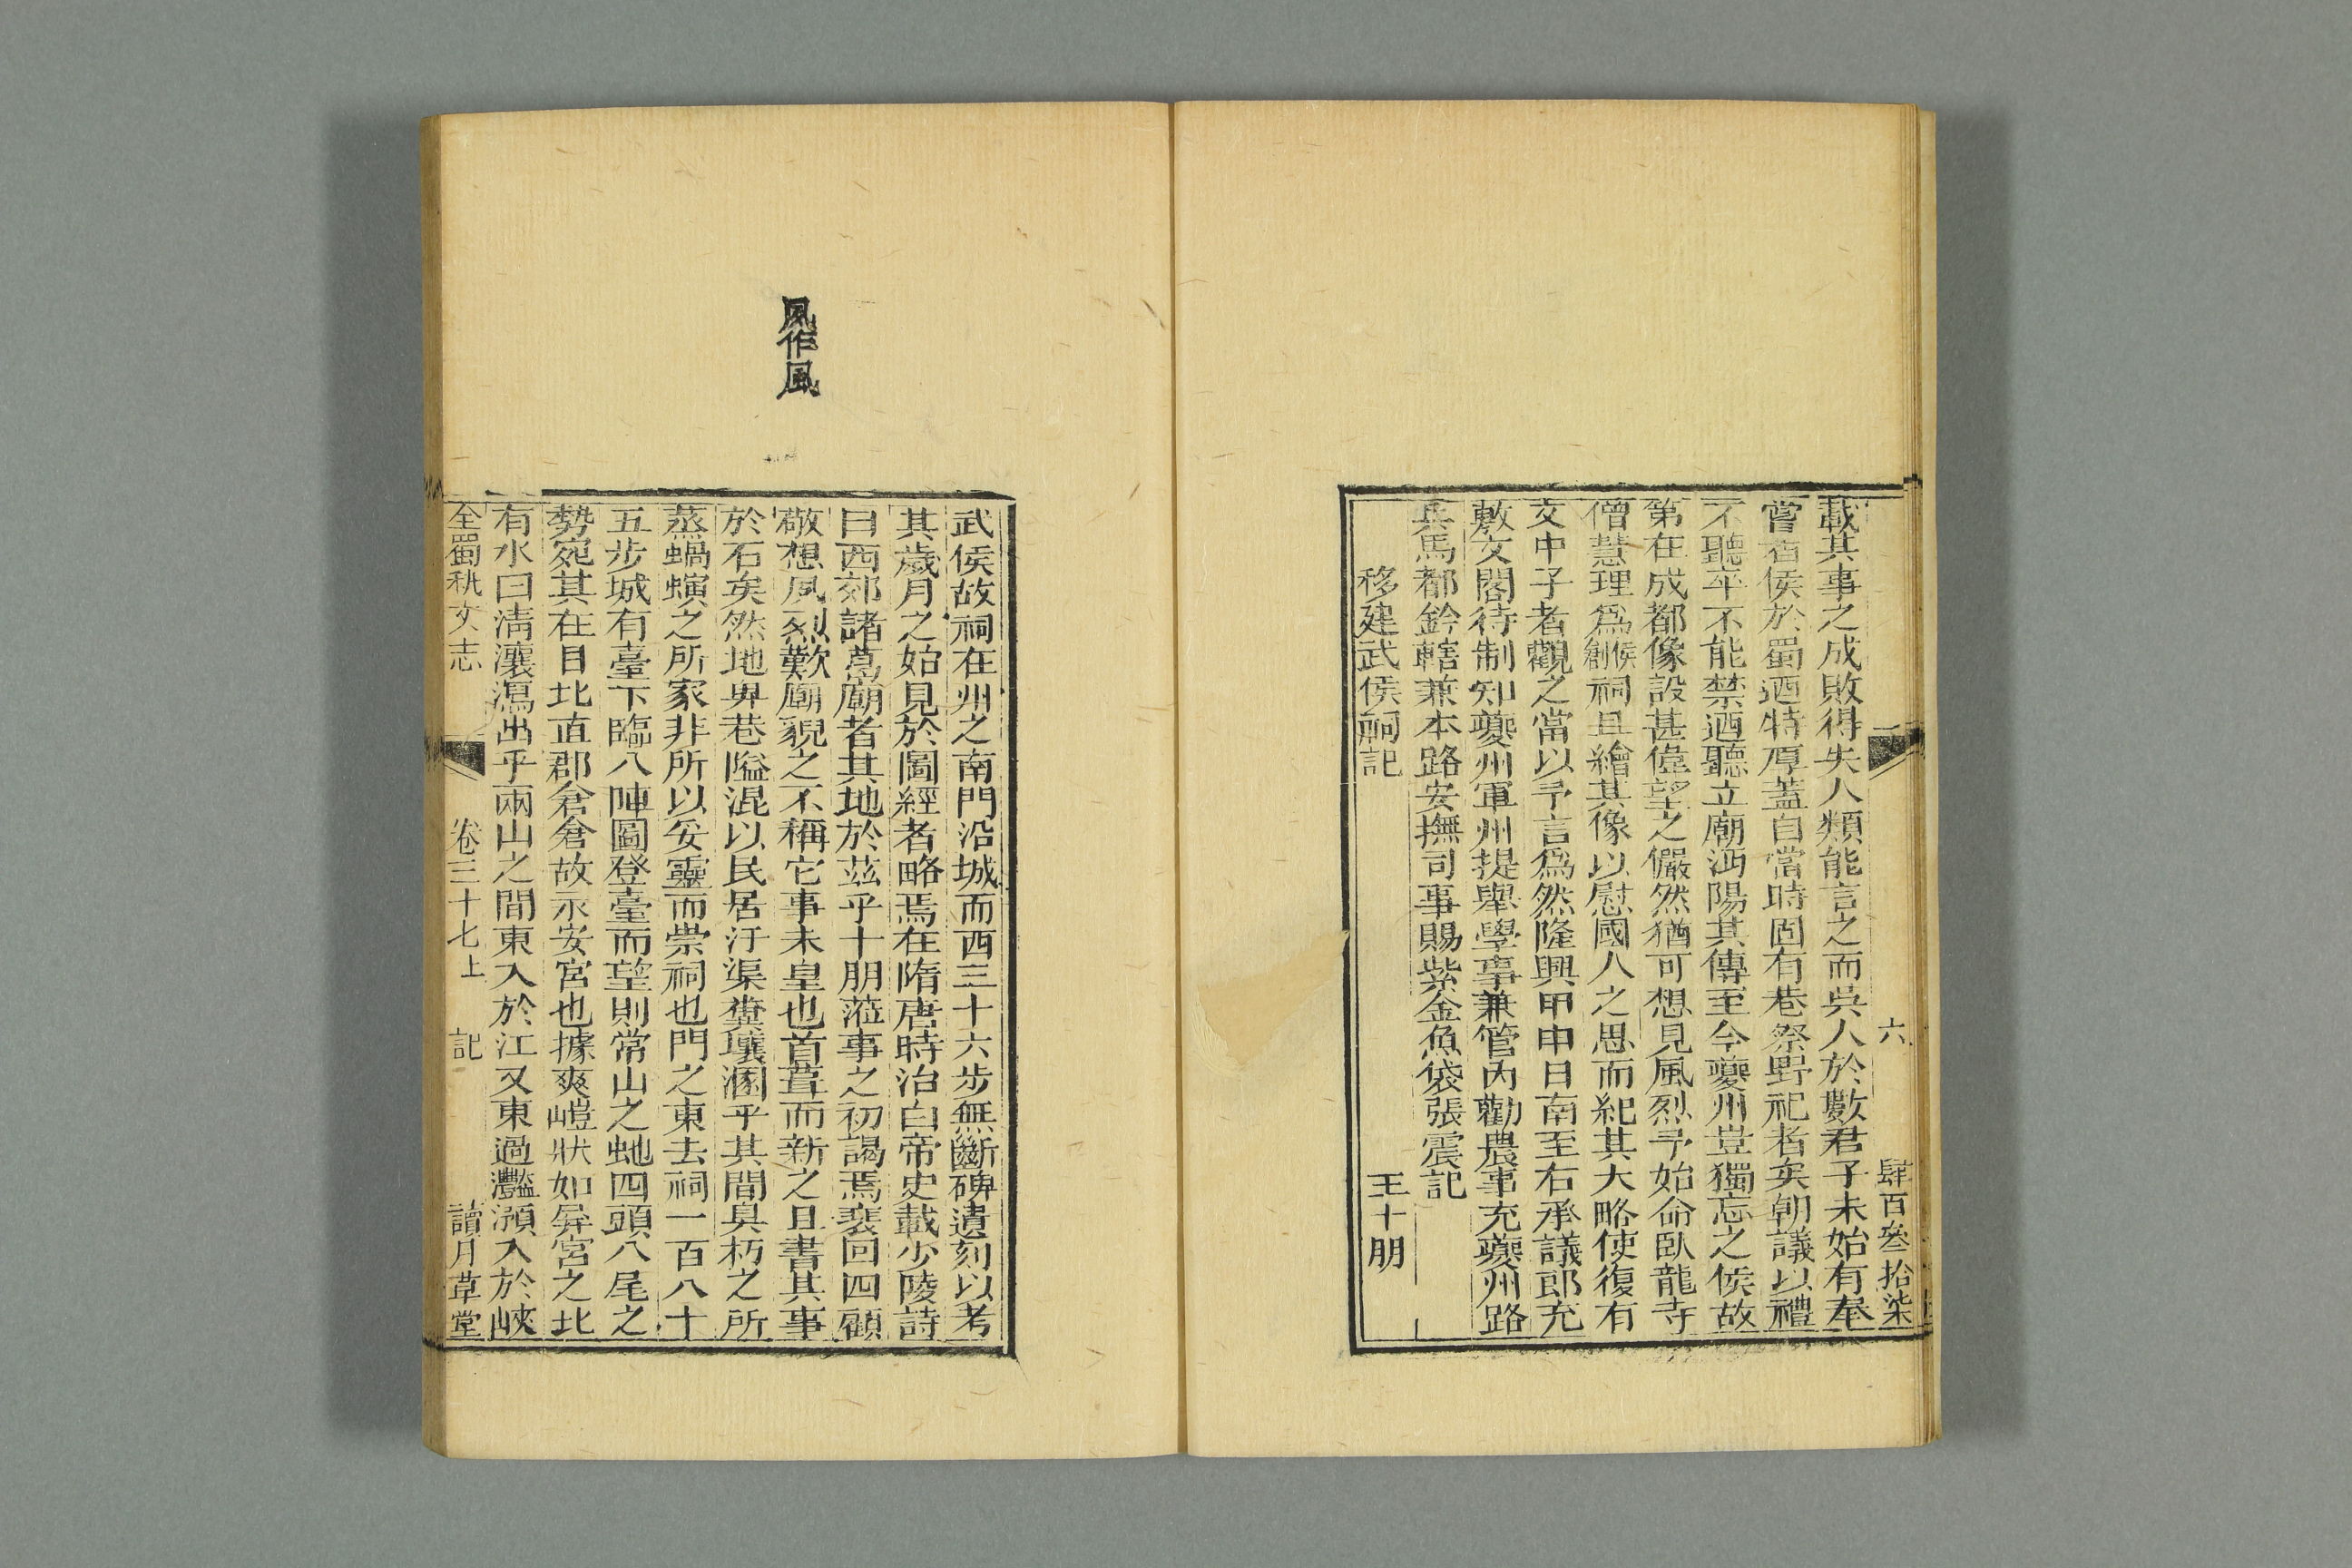 六
肆百叁拾柒
載其事之成敗得失人類能言之而吳人於數君子未始有奉
嘗者侯於蜀迺特厚蓋自當時固有巷祭野祀者矣朝議以禮
不聽卒不能禁迺聽立廟沔陽其傳至今夔州豈獨忘之侯故
第在成都像設甚偉望之儼然猶可想見風烈予始命臥龍寺
僧慧理爲侯創祠且繪其像以慰國人之思而紀其大略使復有
文中子者觀之當以予言爲然隆興甲申日南至右承議郎充
敷文閣待制知夔州軍州提舉學事兼管內勸農事充夔州路
兵馬都鈐轄兼本路安撫司事賜紫金魚袋張震記
移建武侯祠記
王十朋
凨作風
武侯故祠在州之南門沿城而西三十六步無斷碑遺刻以考
其歲月之始見於圖經者略焉在隋唐時治白帝史載少陵詩
曰西郊諸葛廟者其地於茲乎十朋蒞事之初謁焉裴回四顧
敬想凨烈歎廟貌之不稱它事未皇也首葺而新之且書其事
於石矣然地卑巷隘混以民居汙渠糞壤溷乎其間臭朽之所
蒸蝸螾之所家非所以妥靈而崇祠也門之東去祠一百八十
五步城有臺下臨八陣圖登臺而望則常山之虵四頭八尾之
勢宛其在目北直郡倉倉故永安宮也據爽嵦狀如屏宮之北
有水曰淸瀼瀉出乎兩山之間東入於江又東過灩澦入於峽
全蜀秇文志
卷三十七上
記
讀月草堂